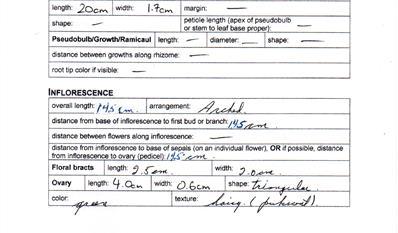 length: 20cm width: 1.7cm margin: —
shape: — petiole length (apex of pseudobulb or stem to leaf base proper): —
Pseudobulb/Growth/Ramicaul length: — diameter: — shape: —
distance between growths along rhizome: —
root tip color if visible: —
INFLORESCENCE
overall length: 14.5 cm. arrangement: Arched.
distance from base of inflorescence to first bud or branch: 14.5 cm
distance between flowers along inflorescence: —
distance from inflorescence to base of sepals (on an individual flower), OR if possible, distance
from inflorescence to ovary (pedicel): 14.5 cm.
Floral bracts length: 2.5cm. width: 2.0cm.
Ovary length: 4.0cm width: 0.6cm shape: triangular
color: green texture: hairy (